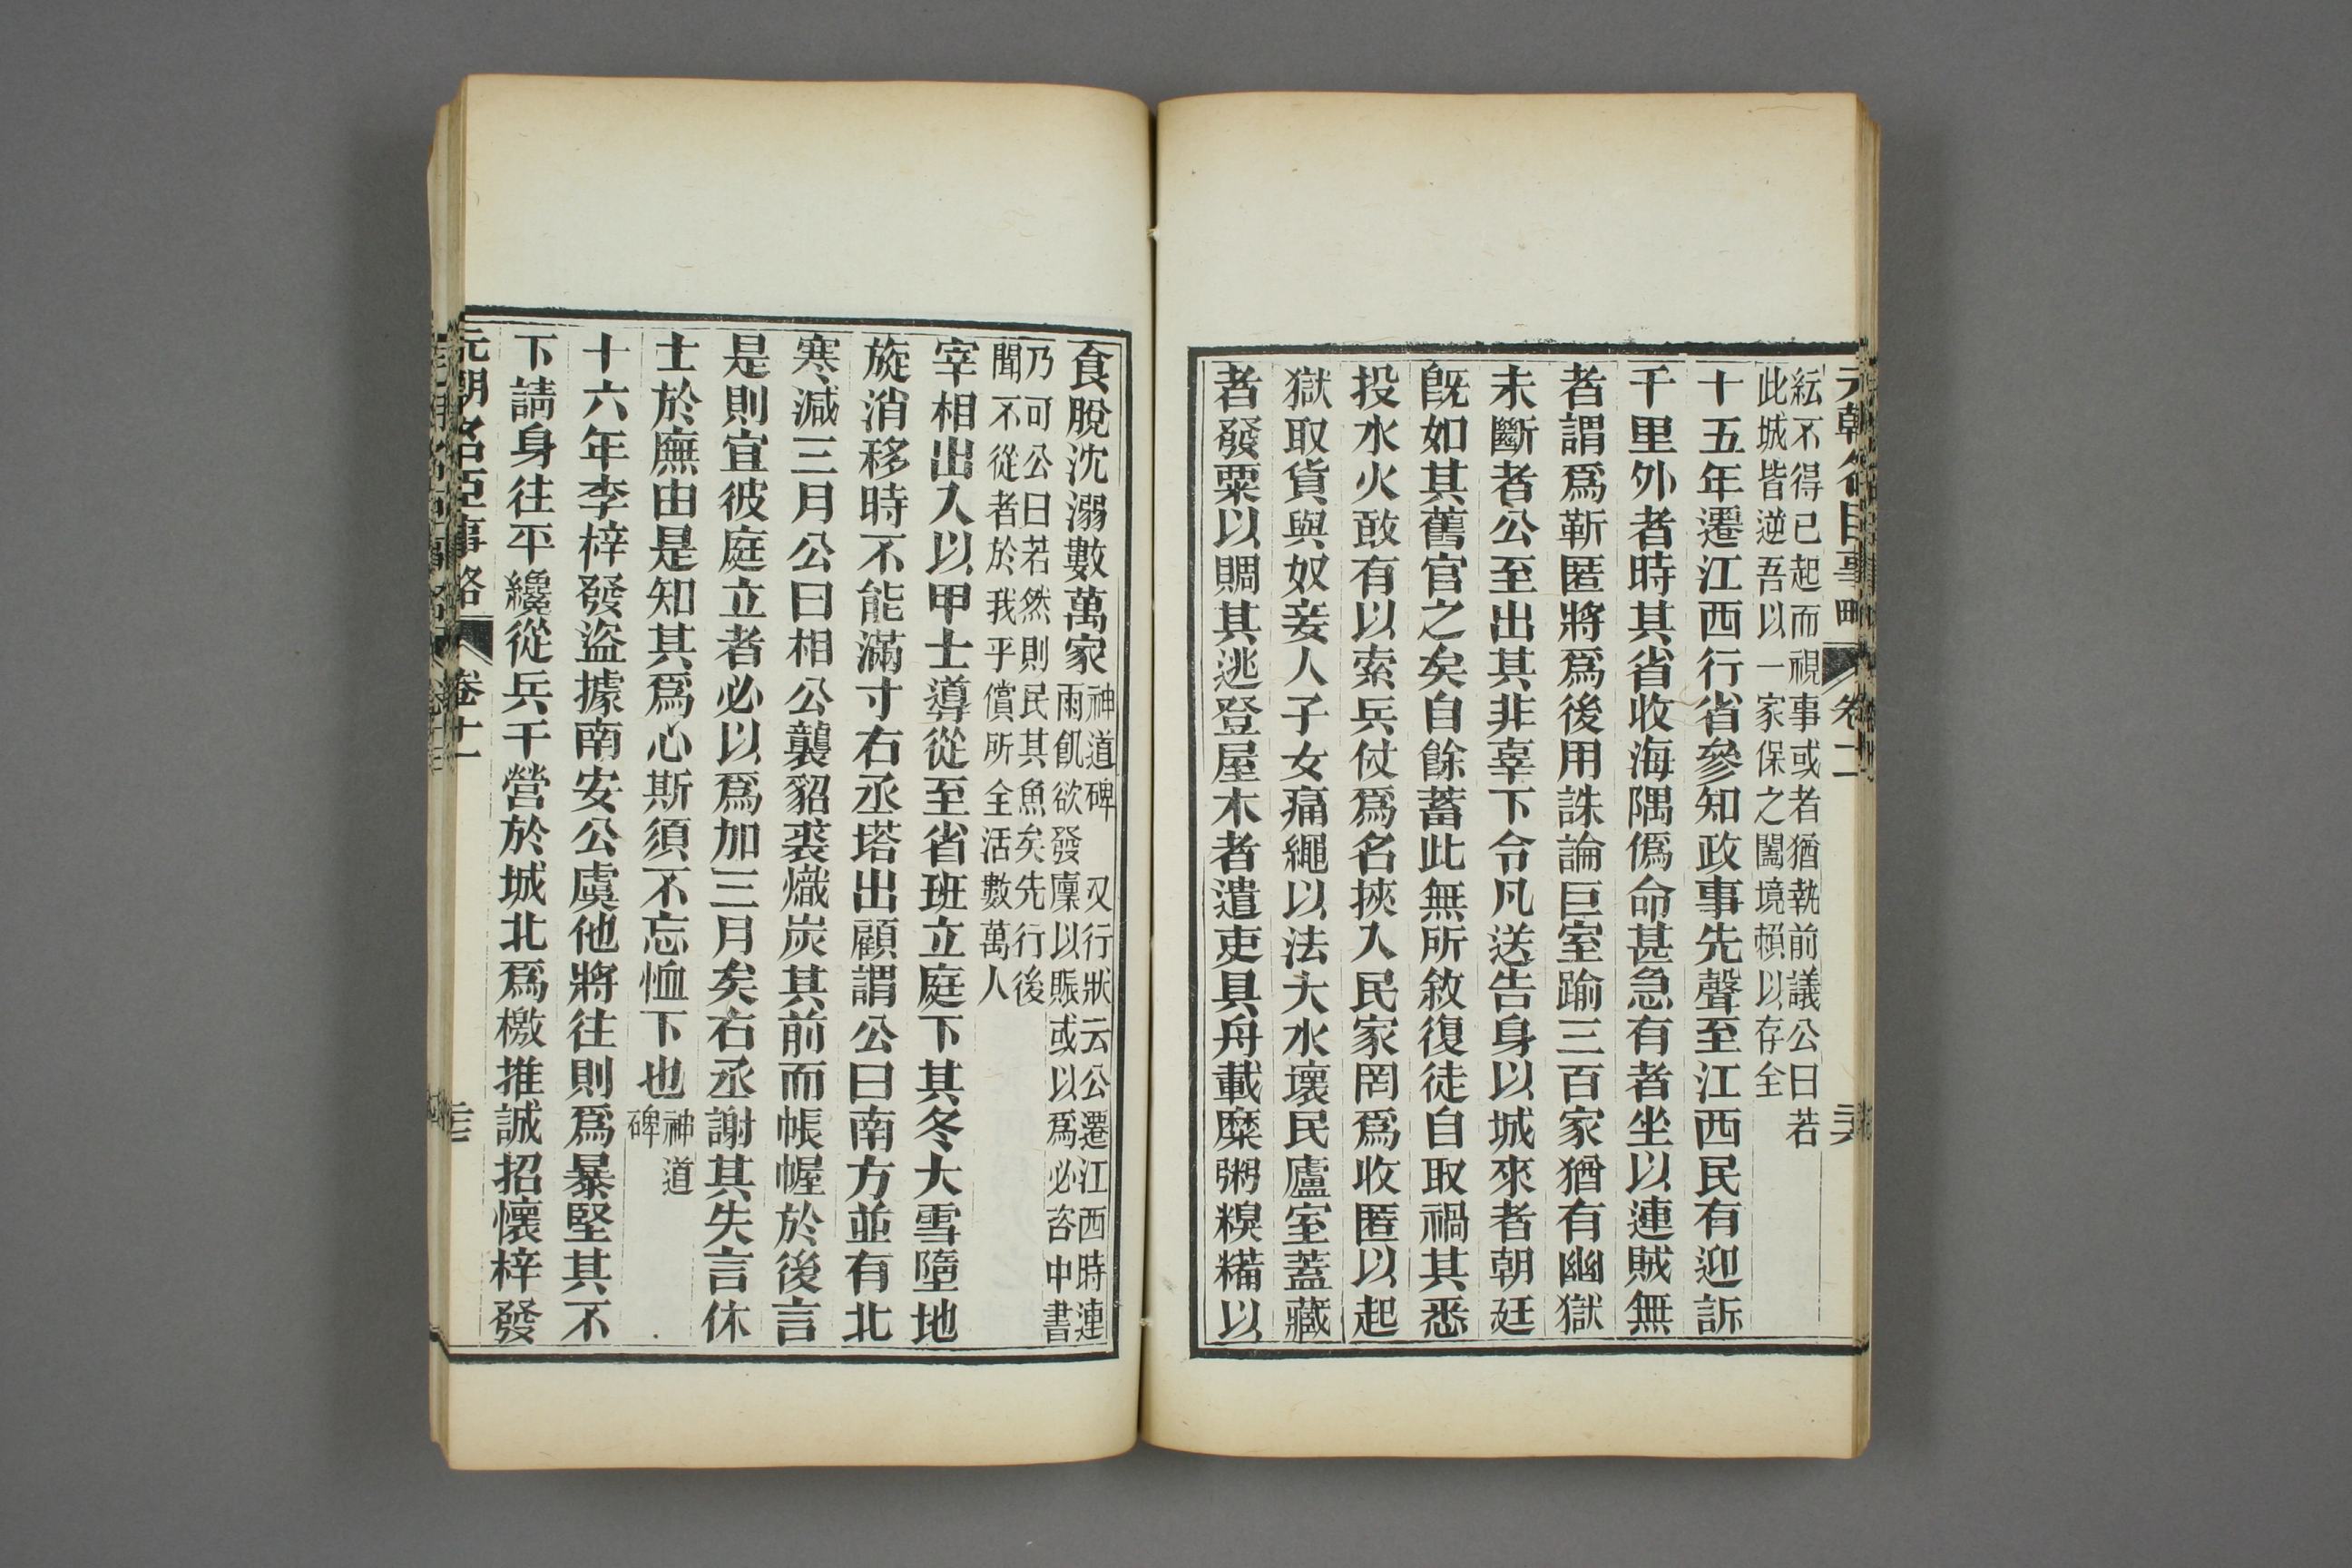 元朝名臣事略 卷十一
紜不得已起而視事或者猶執前議公曰若
此城皆逆吾以一家保之闔境賴以存全
十五年遷江西行省參知政事先聲至江西民有迎訴
千里外者時其省收海隅僞命甚急有者坐以連賊無
者謂爲靳匿將爲後用誅論巨室踰三百家猶有幽獄
未斷者公至出其非辜下令凡送告身以城來者朝廷
旣如其舊官之矣自餘蓄此無所敘復徒自取禍其悉
投水火敢有以索兵仗爲名挾入民家罔爲收匿以起
獄取貨與奴妾人子女痛繩以法大水壞民廬室蓋藏
者發粟以賙其逃登屋木者遣吏具舟載糜粥糗糒以
食脫沈溺數萬家神道碑 又行狀云公遷江西時連
雨飢欲發廩以賑或以爲必咨中書
乃可公曰若然則民其魚矣先行後
聞不從者於我乎償所全活數萬人
宰相出入以甲士導從至省班立庭下其冬大雪墮地
旋消移時不能滿寸右丞塔出顧謂公曰南方並有北
寒減三月公曰相公襲貂裘熾炭其前而帳幄於後言
是則宜彼庭立者必以爲加三月矣右丞謝其失言休
士於廡由是知其爲心斯須不忘恤下也神道
碑
十六年李梓發盜據南安公虞他將往則爲暴堅其不
下請身往平纔從兵千營於城北爲檄推誠招懷梓發
元朝名臣事略 卷十一